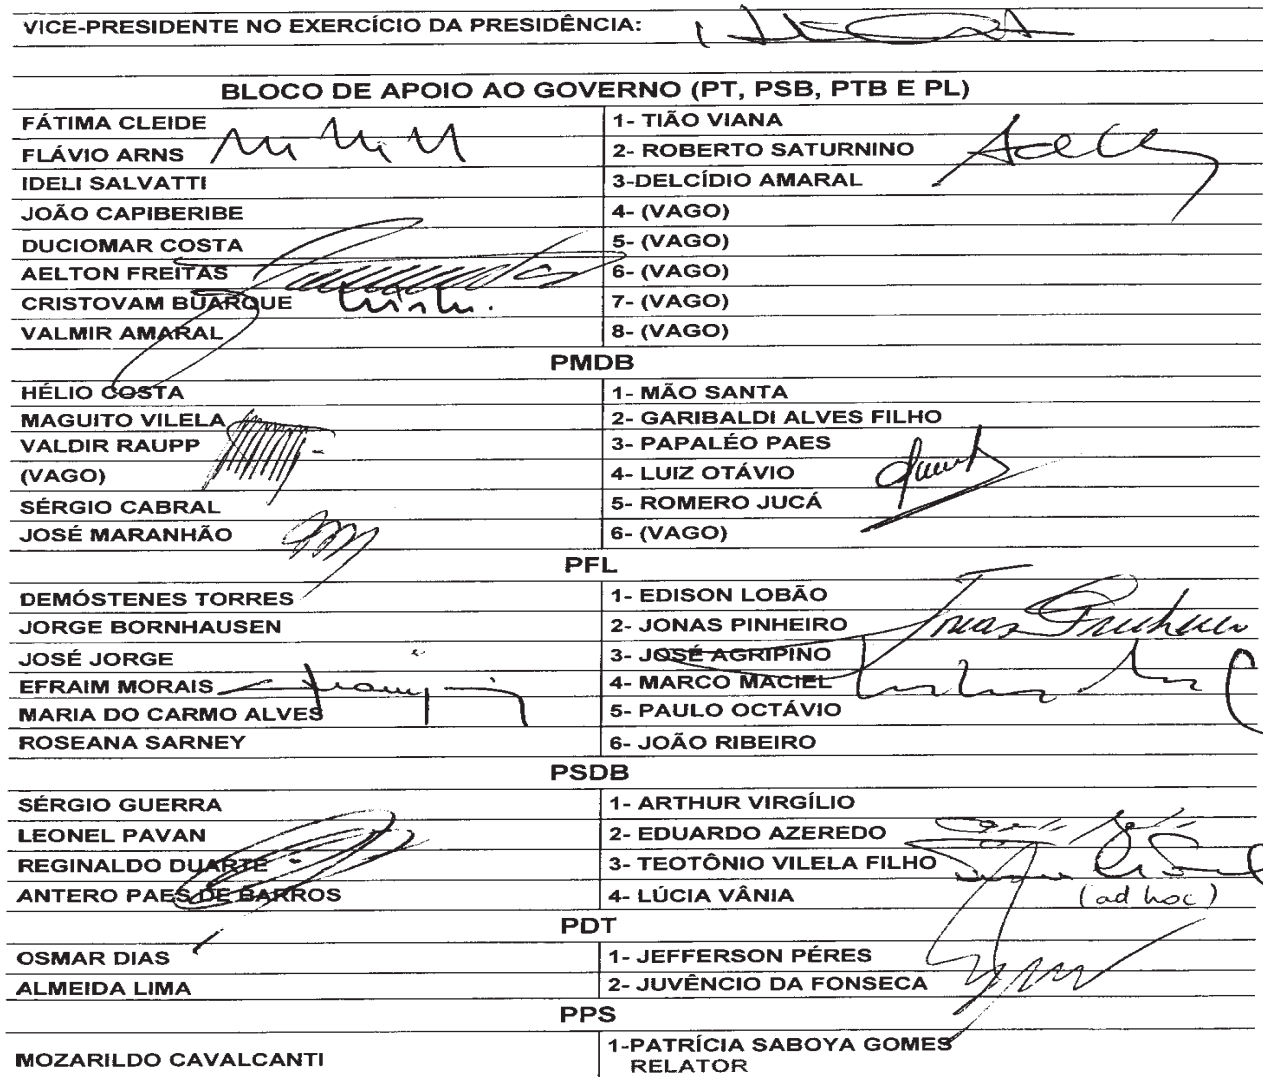 VICE-PRESIDENTE NO EXERCÍCIO DA PRESIDÊNCIA:
BLOCO DE APOIO AO GOVERNO (PT, PSB, PTB E PL)
FÁTIMA CLEIDE 1- TIÃO VIANA
FLÁVIO ARNS 2- ROBERTO SATURNINO
IDELI SALVATTI 3-DELCÍDIO AMARAL
JOÃO CAPIBERIBE 4- (VAGO)
DUCIOMAR COSTA 5- (VAGO)
AELTON FREITAS 6- (VAGO)
CRISTOVAM BUARQUE 7- (VAGO)
VALMIR AMARAL 8- (VAGO)
PMDB
HÉLIO COSTA 1- MÃO SANTA
MAGUITO VILELA 2- GARIBALDI ALVES FILHO
VALDIR RAUPP 3- PAPALÉO PAES
(VAGO) 4- LUIZ OTÁVIO
SÉRGIO CABRAL 5- ROMERO JUCÁ
JOSÉ MARANHÃO 6- (VAGO)
PFL
DEMÓSTENES TORRES 1- EDISON LOBÃO
JORGE BORNHAUSEN 2- JONAS PINHEIRO Jonas Pinheiro
JOSÉ JORGE 3- JOSÉ AGRIPINO
EFRAIM MORAIS 4- MARCO MACIEL
MARIA DO CARMO ALVES 5- PAULO OCTÁVIO
ROSEANA SARNEY 6- JOÃO RIBEIRO
PSDB
SÉRGIO GUERRA 1- ARTHUR VIRGÍLIO
LEONEL PAVAN 2- EDUARDO AZEREDO
REGINALDO DUARTE 3- TEOTÔNIO VILELA FILHO
ANTERO PAES DE BARROS 4- LÚCIA VÂNIA (ad hoc)
PDT
OSMAR DIAS 1- JEFFERSON PÉRES
ALMEIDA LIMA 2- JUVÊNCIO DA FONSECA
PPS
MOZARILDO CAVALCANTI 1-PATRÍCIA SABOYA GOMES
RELATOR